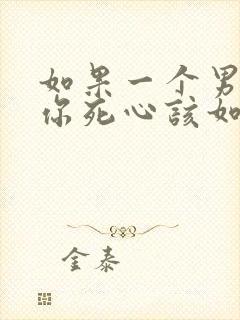 如果一个男
你死心该如
金泰